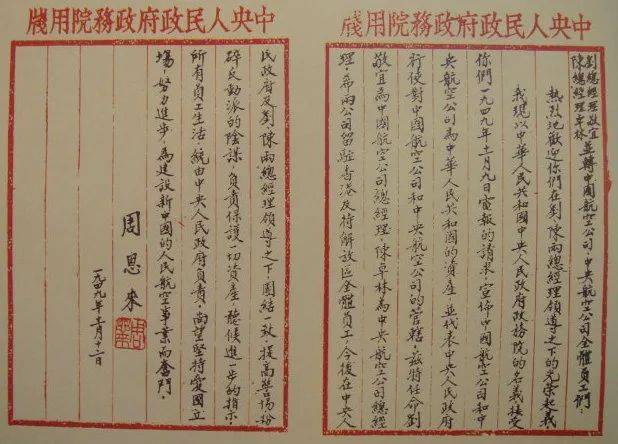 中央人民政府政務院用牋
劉總經理敬宜
陳總經理卓林
並轉中國航空公司、中央航空公司全體員工們：
熱烈地歡迎你們在劉、陳兩總經理領導之下的光榮起義。
我現以中華人民共和國中央人民政府政務院的名義接受
你們一九四九年十一月九日電報的請求，宣佈中國航空公司和中
央航空公司為中華人民共和國的資產，並代表中央人民政府
行使對中國航空公司和中央航空公司的管轄。茲特任命劉
敬宜為中國航空公司總經理，陳卓林為中央航空公司總經
理，希兩公司留駐香港及待解放區全體員工，今後在中央人
中央人民政府政務院用牋
民政府及劉、陳兩總經理領導之下，團結一致，提高警惕，粉
碎反動派的陰謀，負責保護一切資產，聽候進一步的指示。
所有員工生活，統由中央人民政府負責，尚望堅持愛國立
場，努力進步，為建設新中國的人民航空事業而奮鬥。
周恩來
一九四九年十一月十二日